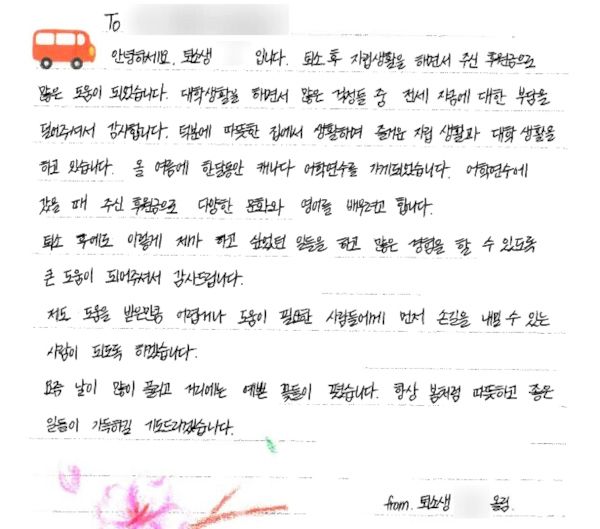 To
안녕하세요. 퇴소생 입니다. 퇴소 후 자립생활을 하면서 주신 후원금으로
많은 도움이 되었습니다. 대학생활을 하면서 많은 걱정들 중 전세 자금에 대한 부담을
덜어주셔서 감사합니다. 덕분에 따뜻한 집에서 생활하며 즐거운 자립 생활과 대학 생활을
하고 있습니다. 올 여름에 한달동안 캐나다 어학연수를 가게되었습니다. 어학연수에
갔을 때 주신 후원금으로 다양한 문화와 영어를 배우려고 합니다.
퇴소 후에도 이렇게 제가 하고 싶었던 일들을 하고 많은 경험을 할 수 있도록
큰 도움이 되어주셔서 감사드립니다.
저도 도움을 받은만큼 어렵거나 도움이 필요한 사람들에게 먼저 손길을 내밀 수 있는
사람이 되도록 하겠습니다.
요즘 날이 많이 풀리고 거리에는 예쁜 꽃들이 폈습니다. 항상 봄처럼 따뜻하고 좋은
일들이 가득하길 기도드리겠습니다.
from. 퇴소생 올림.